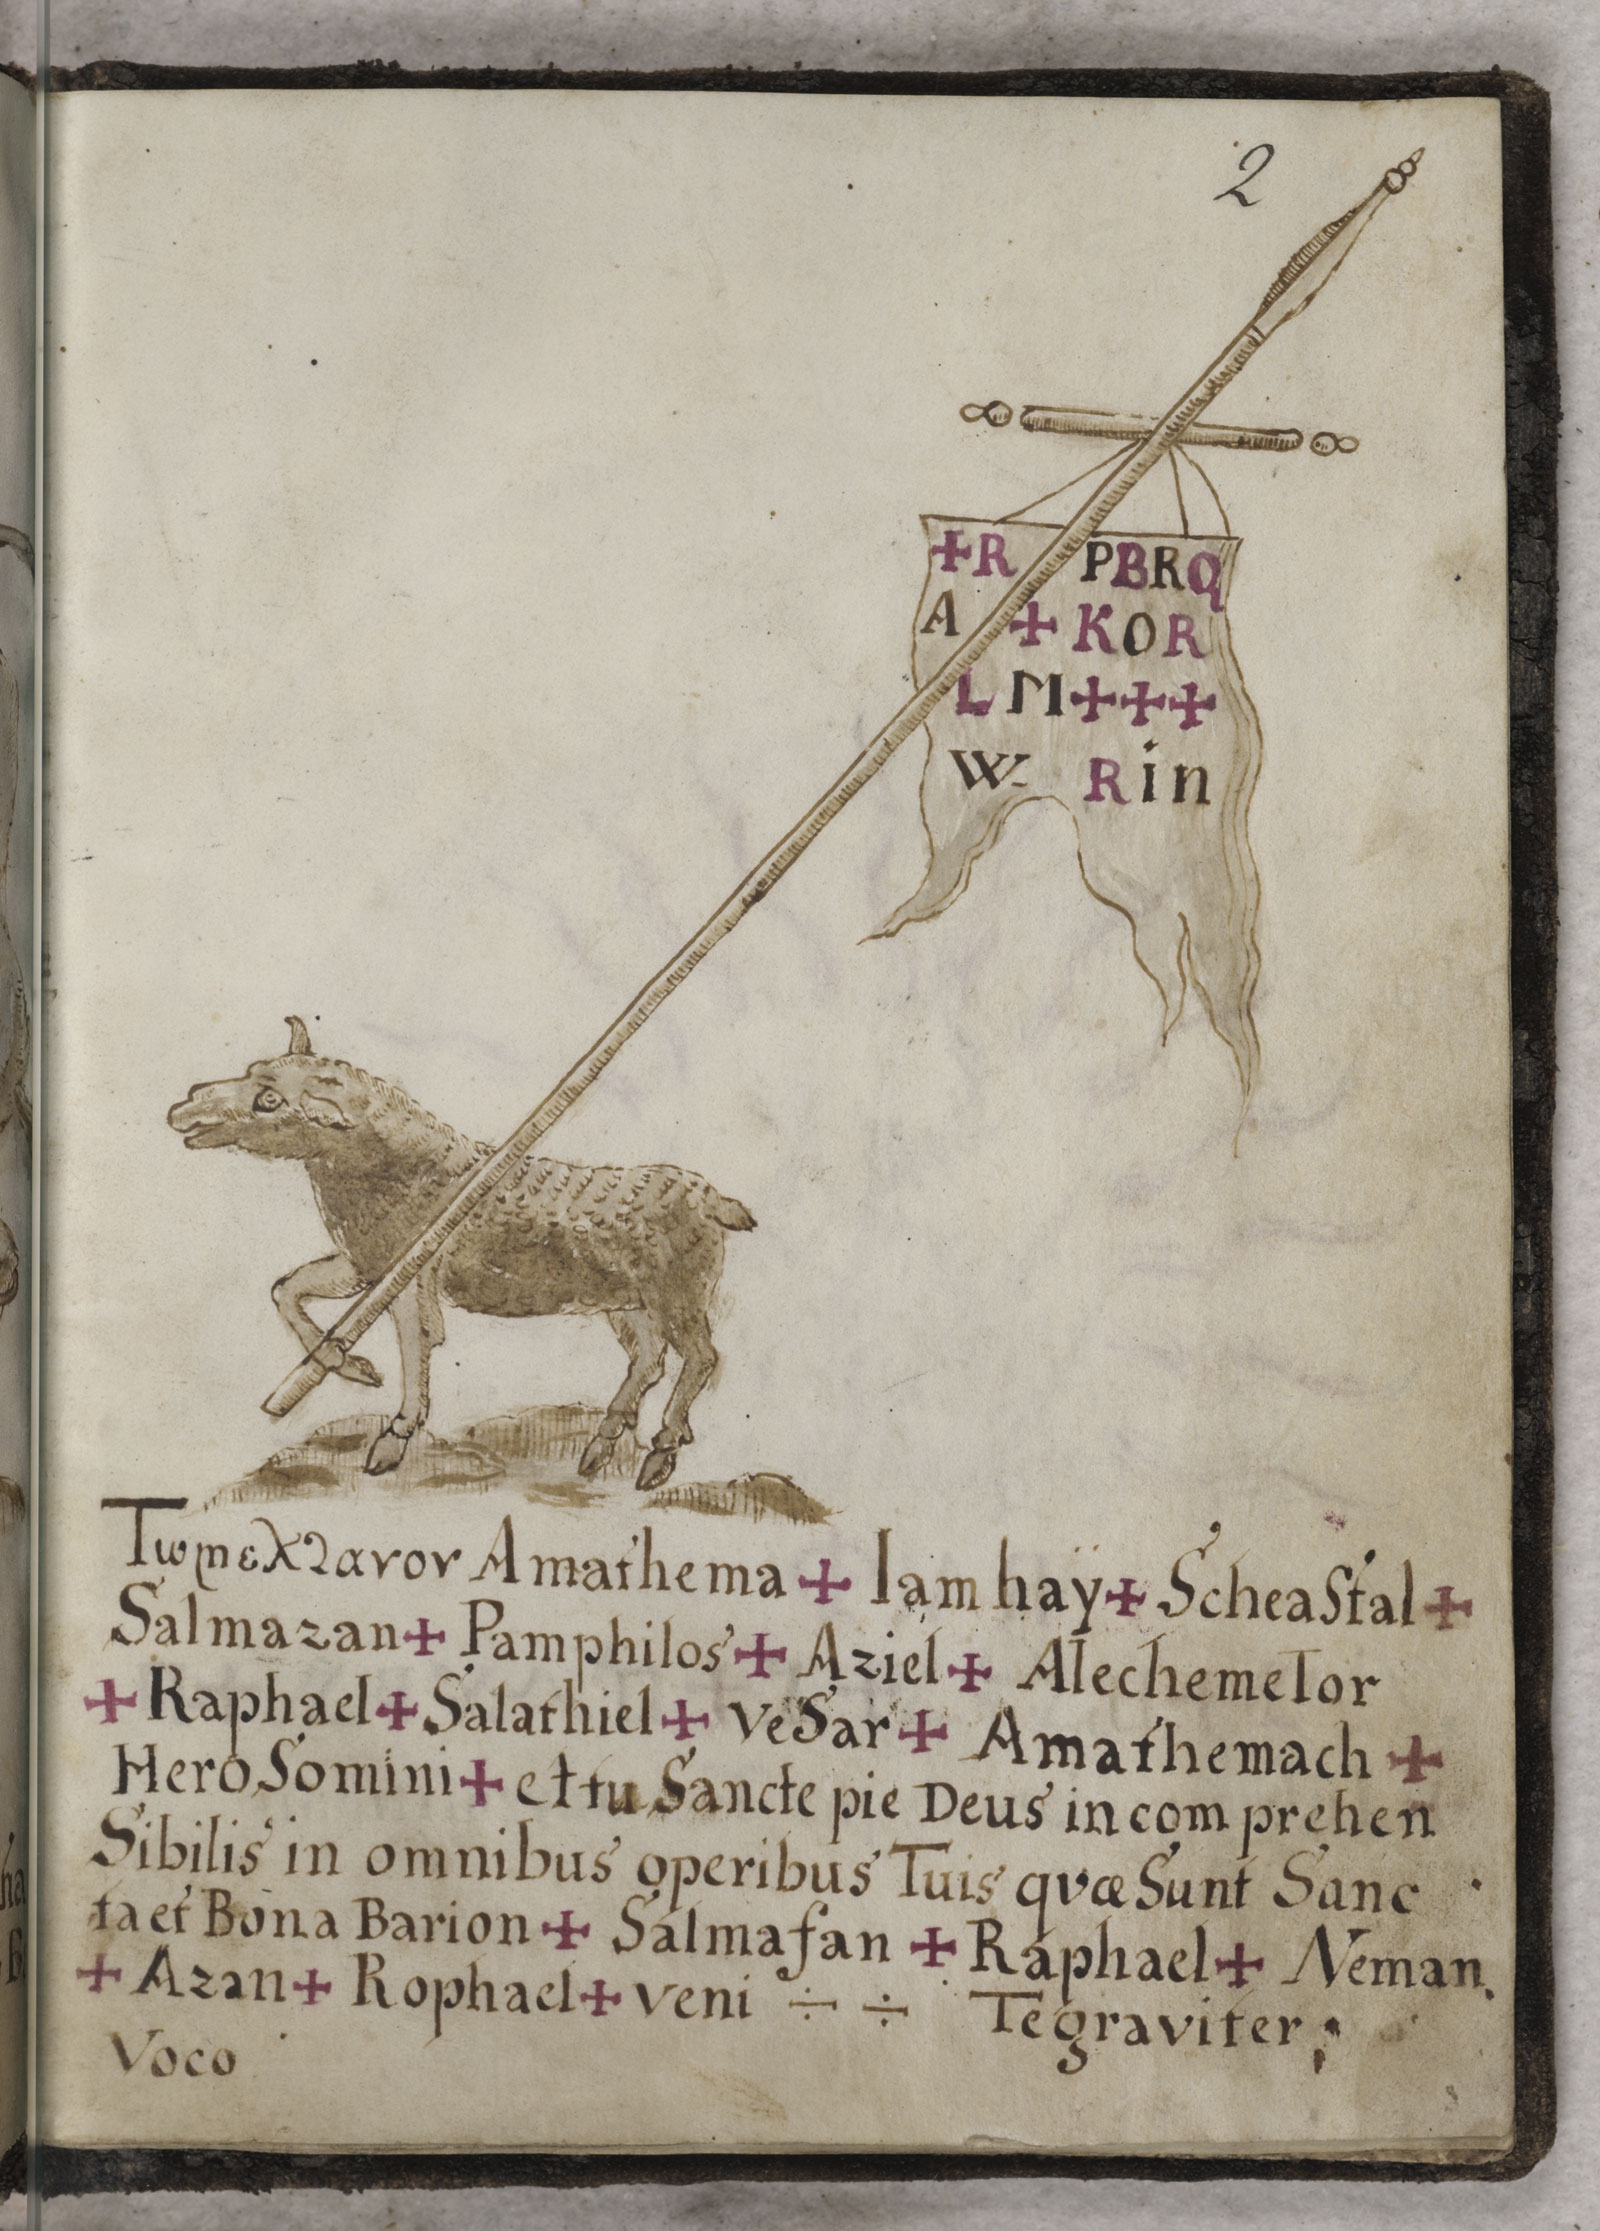 2
✠R PBRQ
A ✠KOR
L M✠✠✠
W- Rin
Amathema ✠ Iam haÿ✠ ScheaStal ✠
Salmazan✠ Pamphilos ✠ Aziel✠ AlechemeTor
✠Raphael✠Salathiel✠ veSar✠ Amathemach ✠
HeroSomini✠ et tu Sancte pie Deus in com prehen
Sibilis in omnibus operibus Tuis qvæ Sunt Sanc
ta et Bona Barion ✠ Salmafan ✠Raphael✠ Neman.
✠ Azan✠ Rophael✠ veni ÷ ÷ Te graviter;
Voco